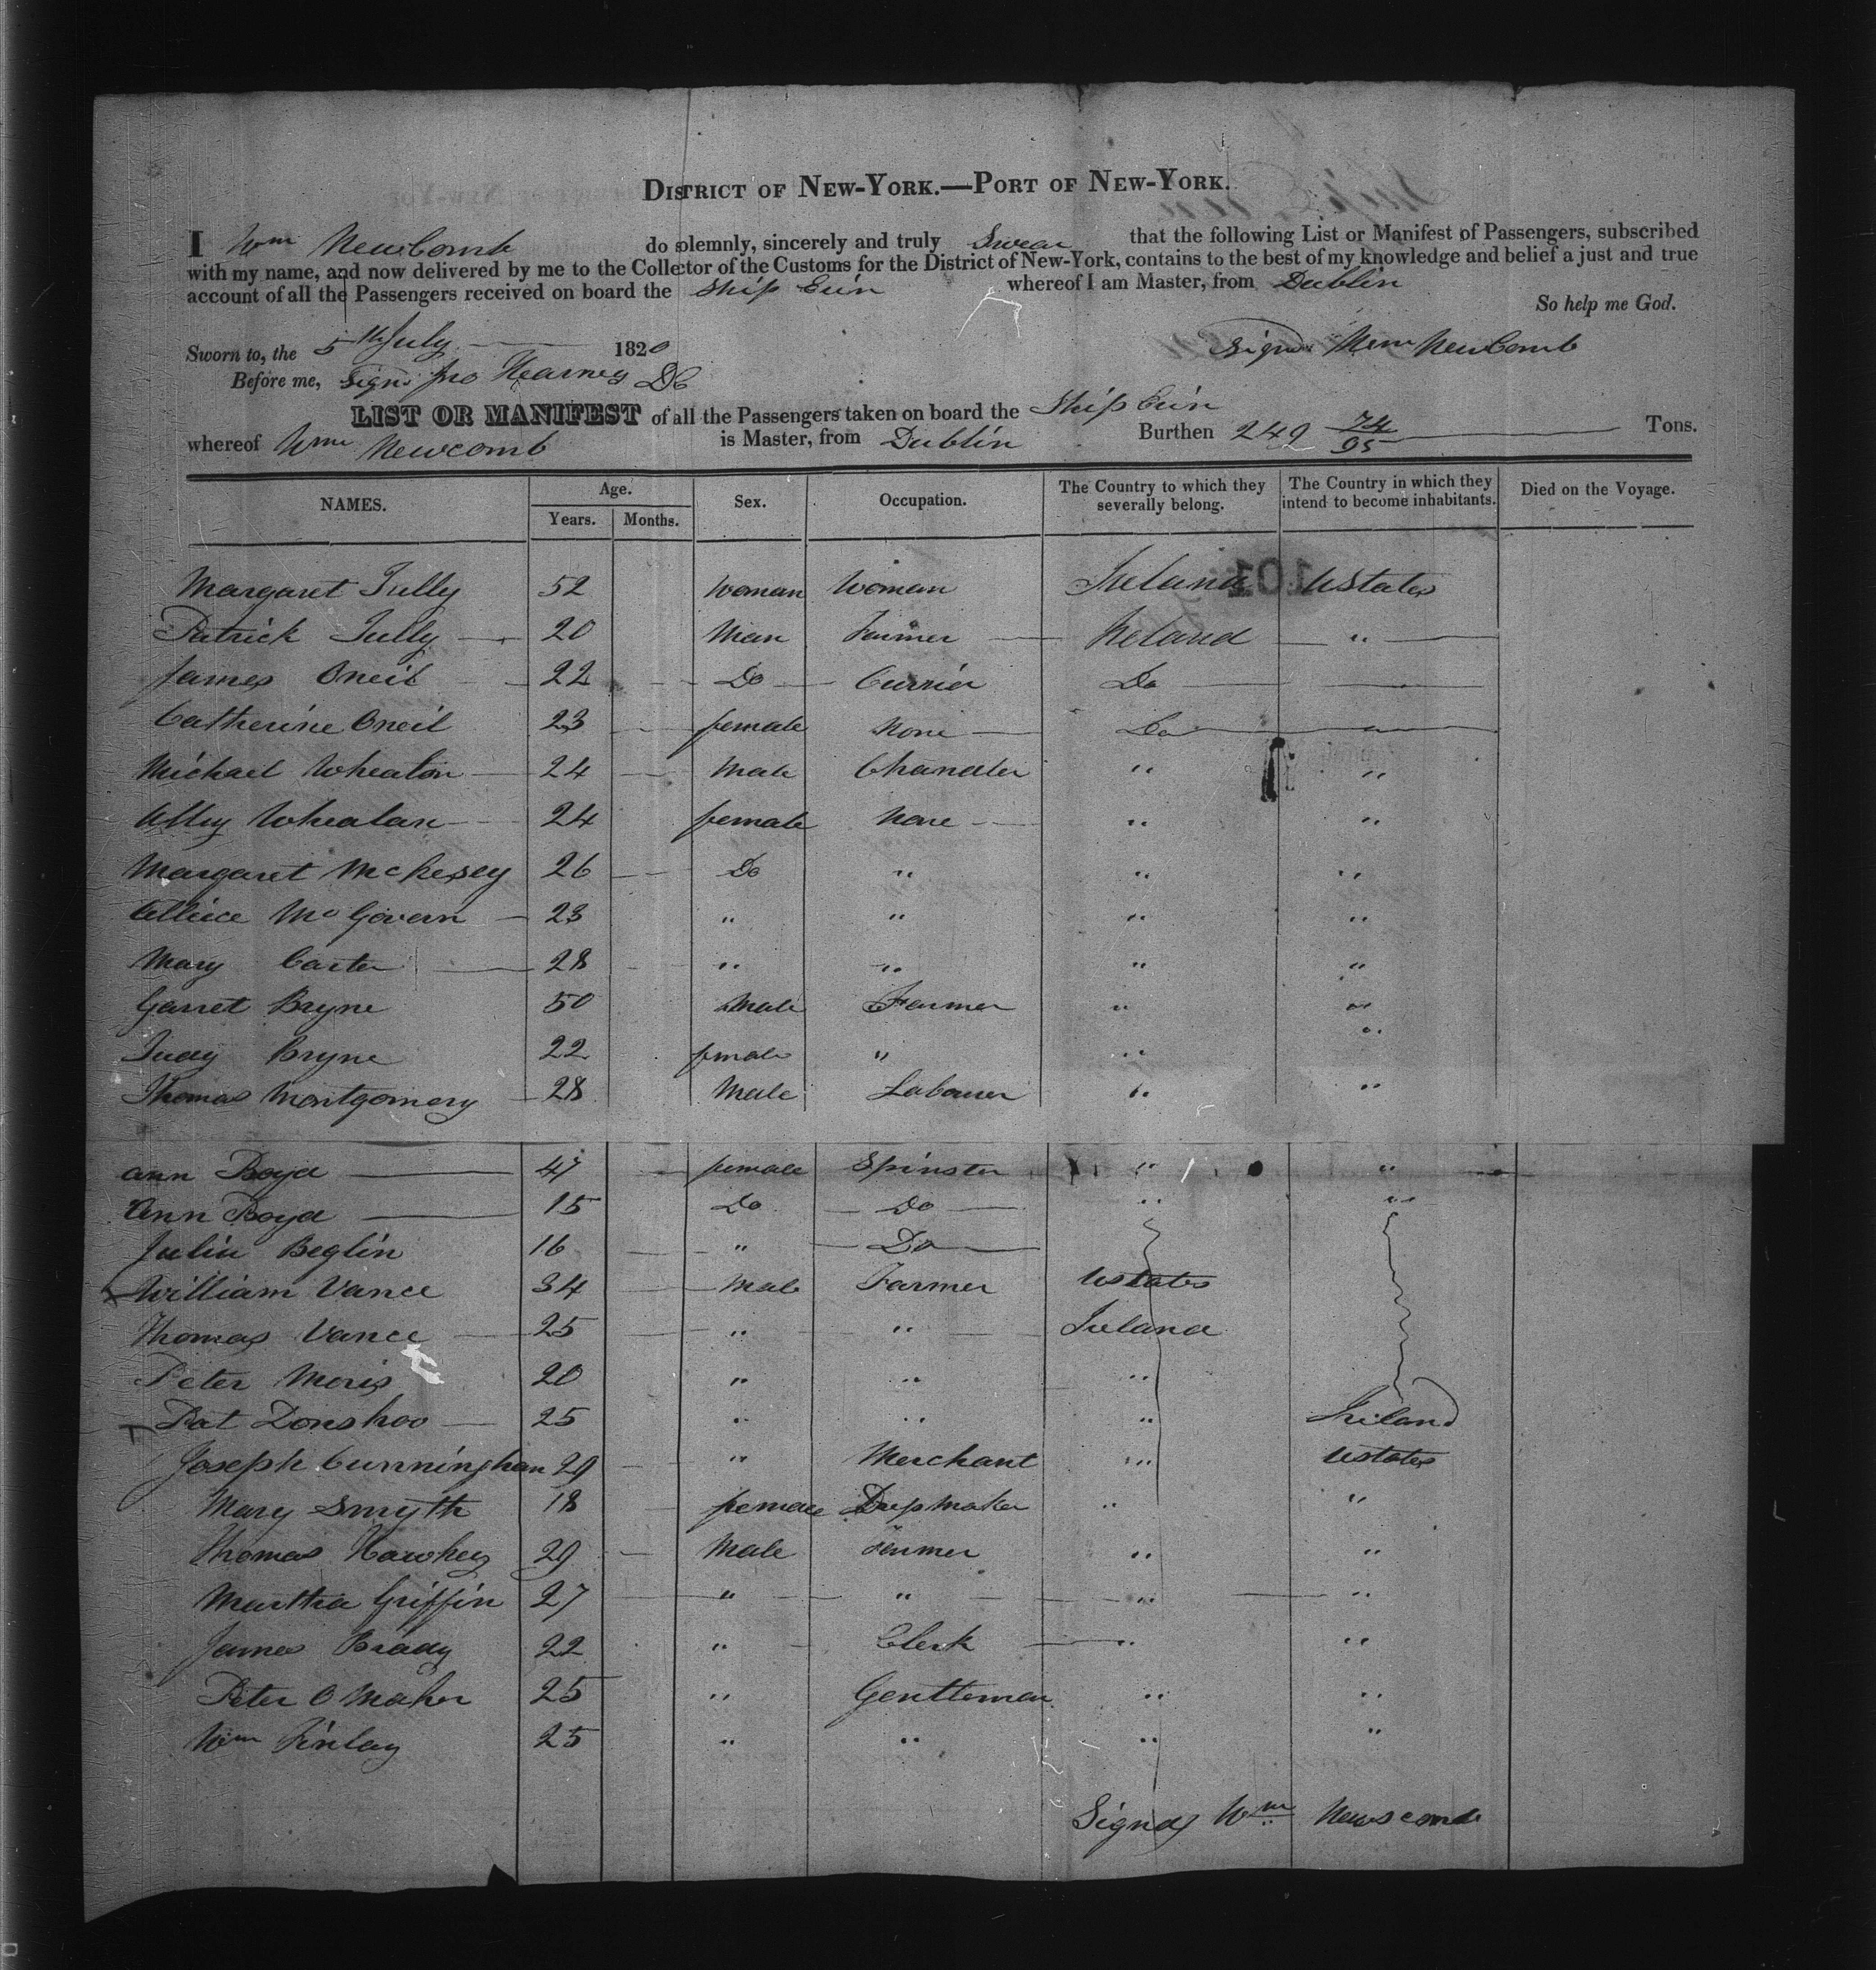 DISTRICT OF NEW-YORK.—PORT OF NEW-YORK.
I Wm Newcomb do solemnly, sincerely and truly Swear that the following List or Manifest of Passengers, subscribed
with my name, and now delivered by me to the Collector of the Customs for the District of New-York, contains to the best of my knowledge and belief a just and true
account of all the Passengers received on board the Ship Erin whereof I am Master, from Dublin
So help me God.
Sworn to, the 5th July 1820 Signd Wm Newcomb
Before me, Signd Jno Kearney DC
LIST OR MANIFEST of all the Passengers taken on board the Ship Erin
whereof Wm Newcomb is Master, from Dublin Burthen 249 74/95 Tons.
NAMES. Age. Years. Months. Sex. Occupation. The Country to which they severally belong. The Country in which they intend to become inhabitants. Died on the Voyage.
Margaret Tully 52 Woman Woman Ireland UStates
Patrick Tully 20 Man Farmer Ireland "
James Oneil 22 Do Currier Do
Catherine Oneil 23 female None Do "
Michael Wheaton 24 Male Chandler " "
Whealan 24 female None " "
Margaret 26 Do " " "
McGovern 23 " " " "
Mary Carter 28 " " " "
Garret Bryne 50 Male Farmer " "
Judy Bryne 22 female " " "
Thomas Montgomery 28 Male Labourer " "
Ann Boyd 47 female Spinster " "
Ann Boyd 15 Do Do " "
Julia Beglin 16 " Do
William Vance 34 Male Farmer Ustates
Thomas Vance 25 " " Ireland
Peter Moris 20 " " "
Pat Donshoo 25 " " " Ireland
Joseph Cunningham 29 " Merchant " Ustates
Mary Smyth 18 female " "
Thomas Hawkey 29 Male Farmer " "
Martha Griffin 27 " " " "
James Brady 22 " Clerk " "
Peter O Maher 25 " Gentleman " "
Wm Finlay 25 " " " "
Signd Wm Newscomb